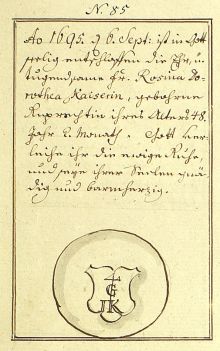 N. 85
Ao 1695. d 6. Sept: ist in Gott
seelig entschlaffen die Ehr, u.
tugendsame Fr: Rosina Do-
rothea Kaiserin, gebohrne
Ruprechtin ihres Alters 48.
Jahr 2. Monath. Gott ver-
leihe ihr die ewige Ruhe,
und seye ihrer Seelen gnä-
dig und barmherzig.
G
JK